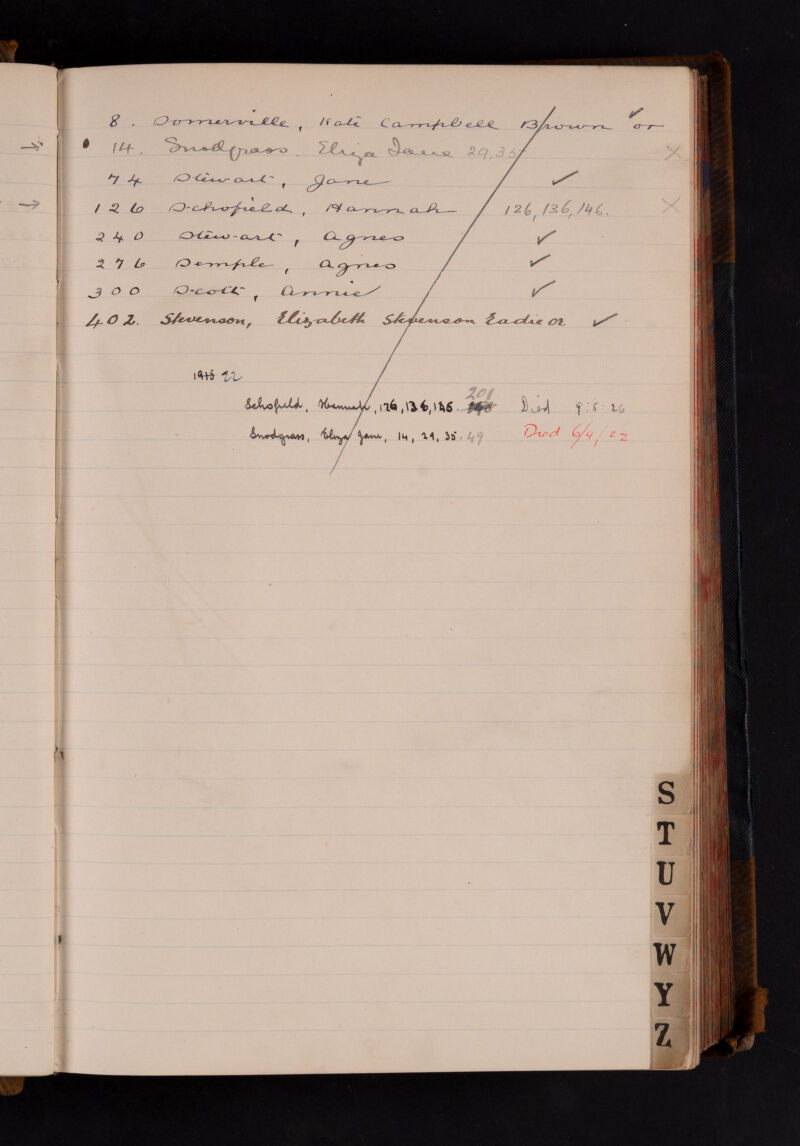 8. Somerville, Kate Campbell Brown or ✓
→ 14. Snodgrass. Eliza Jane 29,35 ×
74 Stewart, Jane ✓
→ 126 Schofield, Hannah 126, 136, 146. ×
240 Stewart, Agnes ✓
276 Semple, Agnes ✓
300 Scott, Annie ✓
402. Stevenson, Elizabeth Stevenson Eadie or ✓
22
201
Schofield, Hannah, 126, 136, 146. Died 9:5:26
Snodgrass, Eliza Jane, 14, 29, 35. 49 Died 6/4/22
S
T
U
V
W
Y
Z